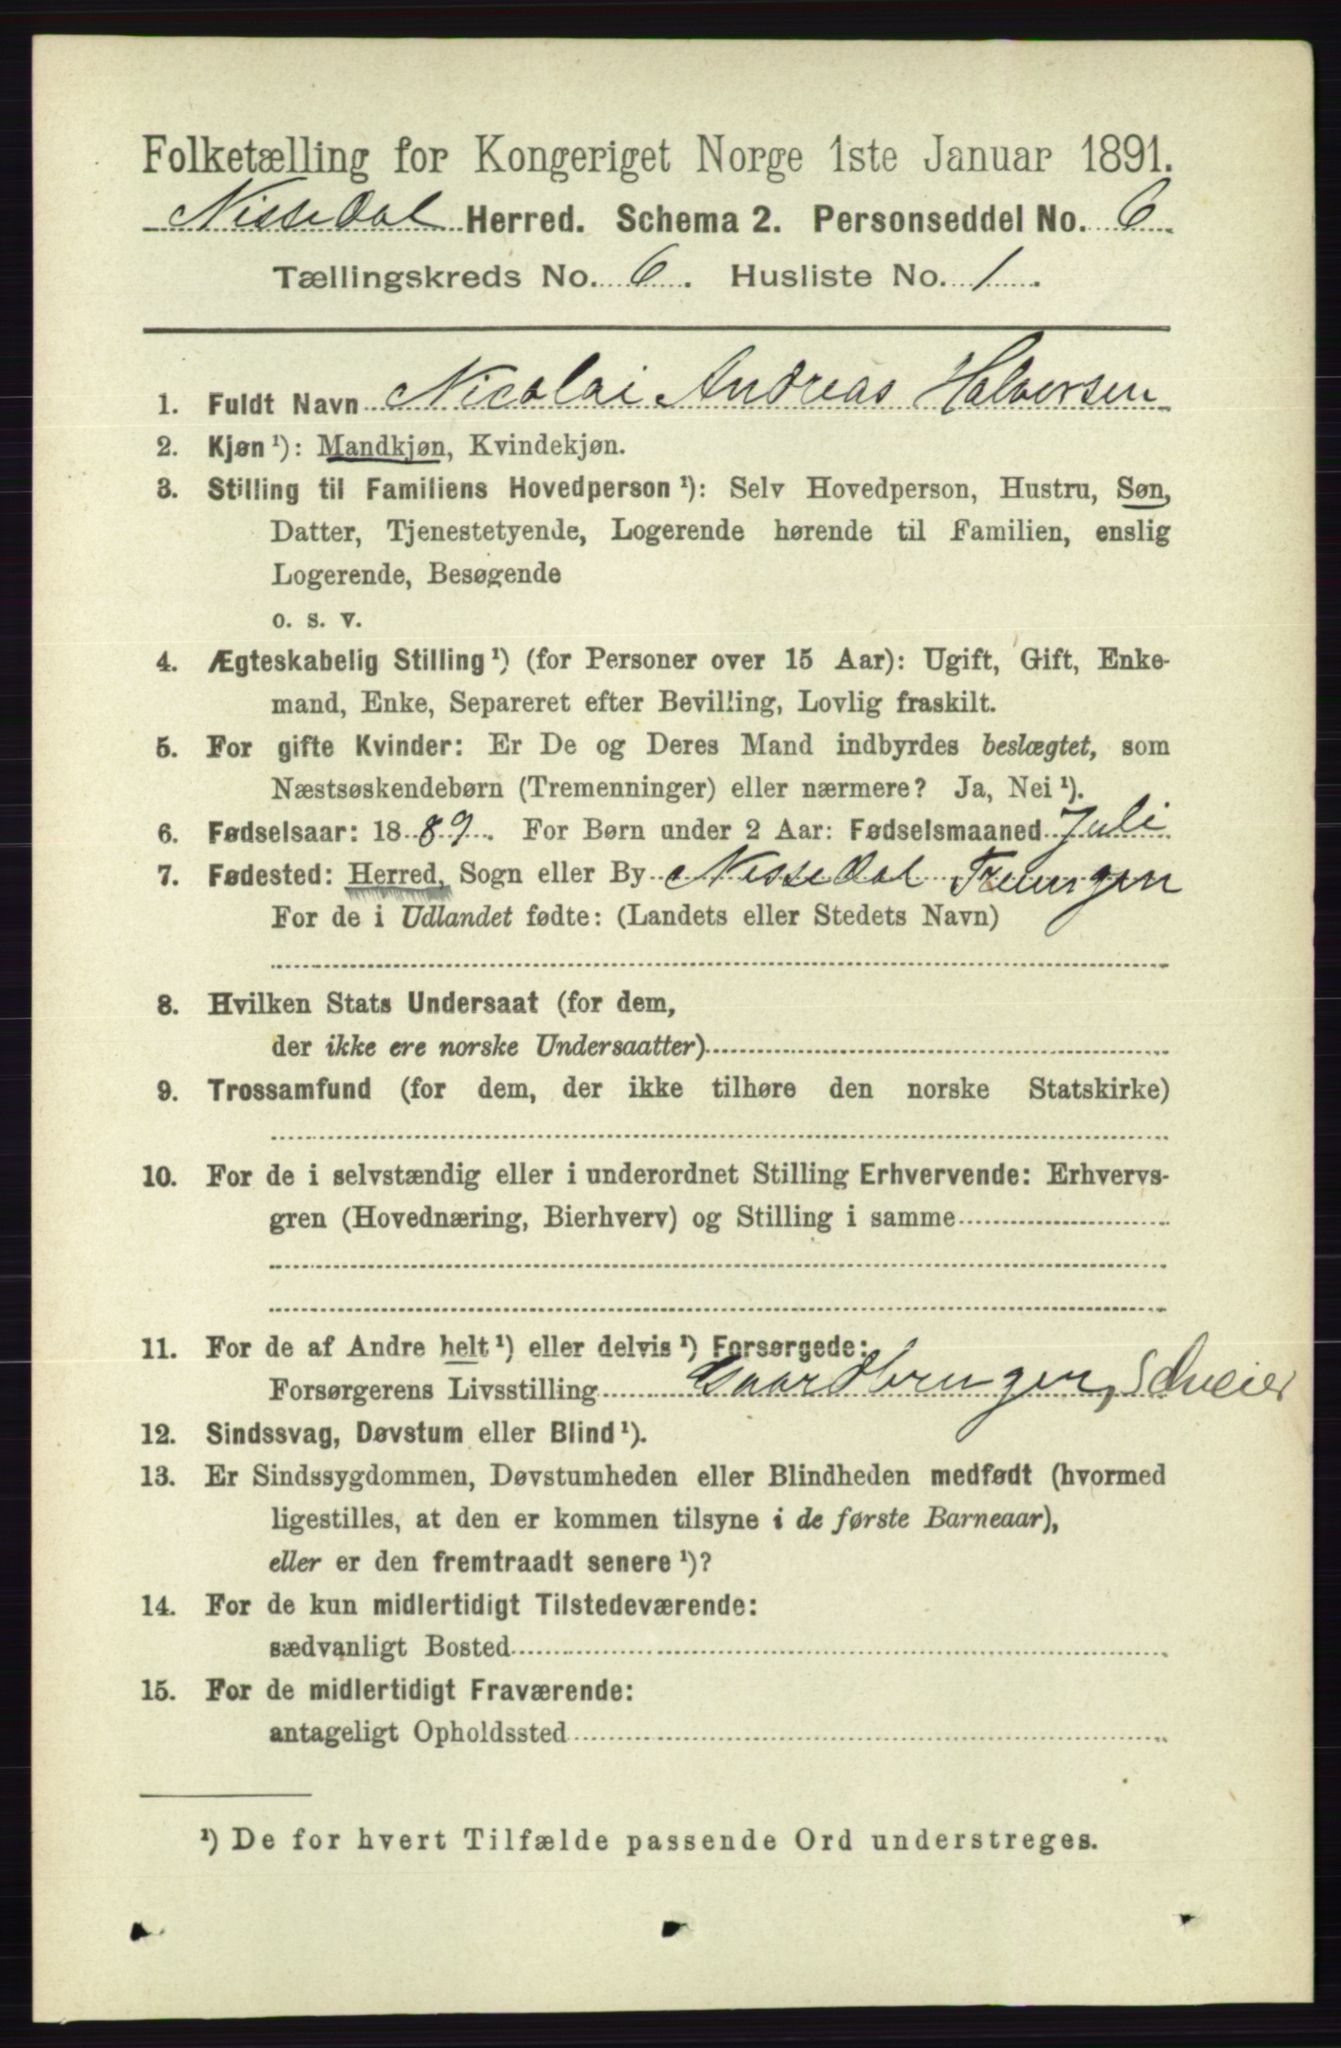 Folketælling for Kongeriget Norge 1ste Januar 1891.
Nissedal Herred. Schema 2. Personseddel No. 6
Tællingskreds No. 6. Husliste No. 1.
1. Fuldt Navn Nicolai Andreas Halversen
2. Kjøn¹): Mandkjøn, Kvindekjøn.
3. Stilling til Familiens Hovedperson¹): Selv Hovedperson, Hustru, Søn,
Datter, Tjenestetyende, Logerende hørende til Familien, enslig
Logerende, Besøgende
o. s. v.
4. Ægteskabelig Stilling¹) (for Personer over 15 Aar): Ugift, Gift, Enke-
mand, Enke, Separeret efter Bevilling, Lovlig fraskilt.
5. For gifte Kvinder: Er De og Deres Mand indbyrdes beslægtet, som
Næstsøskendebørn (Tremenninger) eller nærmere? Ja, Nei¹).
6. Fødselsaar: 1889. For Børn under 2 Aar: Fødselsmaaned Juli
7. Fødested: Herred, Sogn eller By Nissedal Treungen
For de i Udlandet fødte: (Landets eller Stedets Navn)
8. Hvilken Stats Undersaat (for dem,
der ikke ere norske Undersaatter)
9. Trossamfund (for dem, der ikke tilhøre den norske Statskirke)
10. For de i selvstændig eller i underordnet Stilling Erhvervende: Erhvervs-
gren (Hovednæring, Bierhverv) og Stilling i samme
11. For de af Andre helt¹) eller delvis¹) Forsørgede:
Forsørgerens Livsstilling Gaardbruger, Selveier
12. Sindssvag, Døvstum eller Blind¹).
13. Er Sindssygdommen, Døvstumheden eller Blindheden medfødt (hvormed
ligestilles, at den er kommen tilsyne i de første Barneaar),
eller er den fremtraadt senere¹)?
14. For de kun midlertidigt Tilstedeværende:
sædvanligt Bosted
15. For de midlertidigt Fraværende:
antageligt Opholdssted
¹) De for hvert Tilfælde passende Ord understreges.